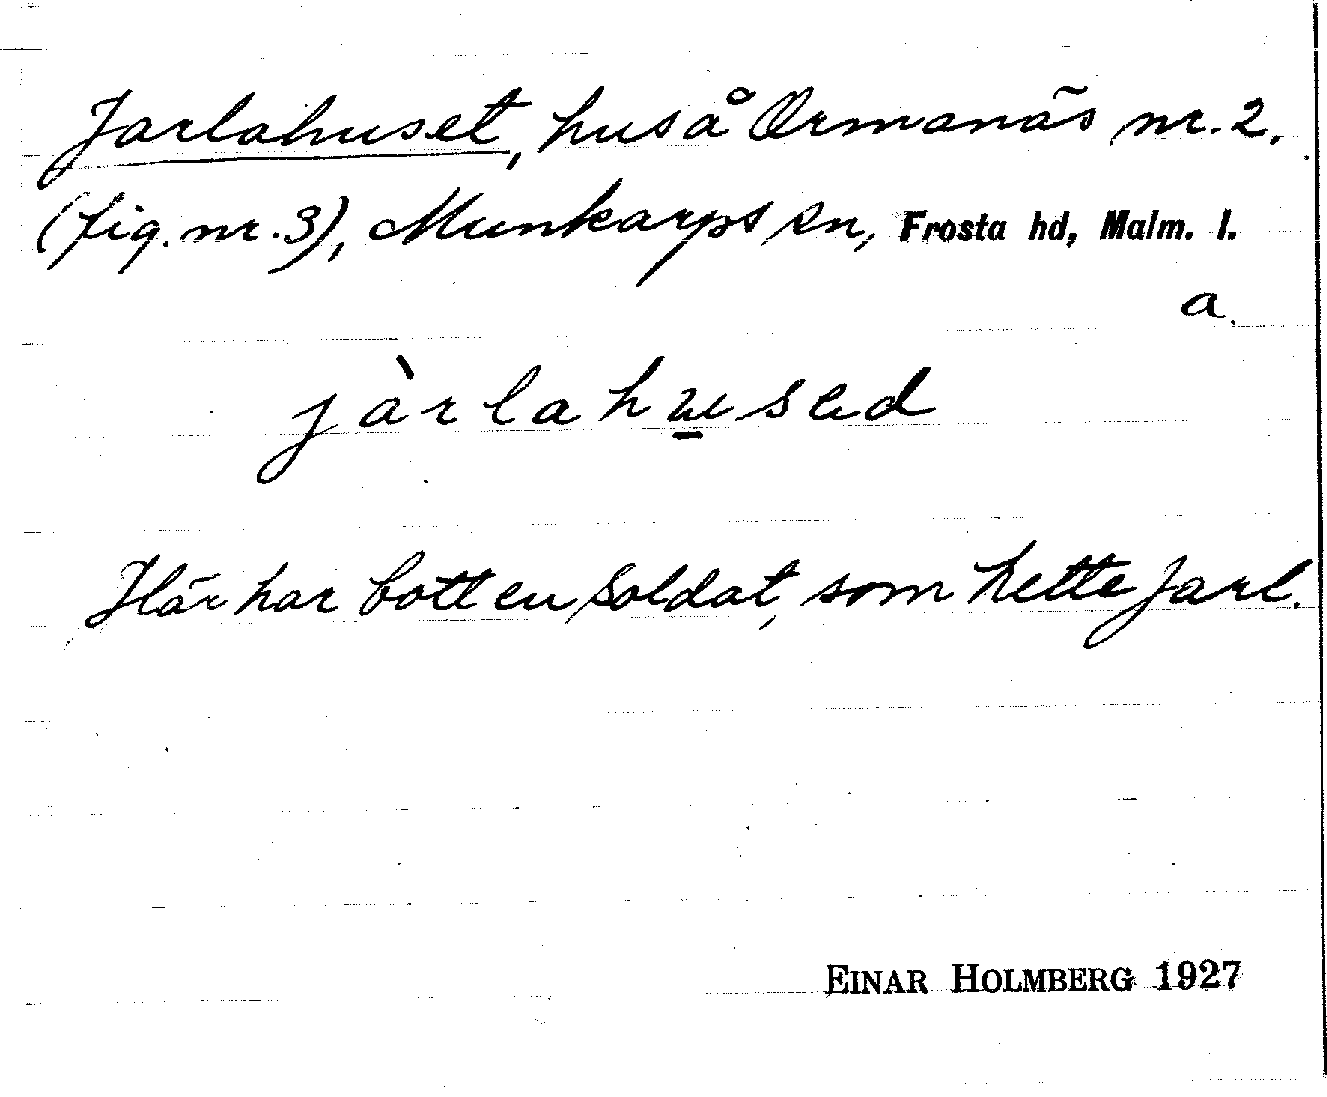 Jarlahuset, hus å Ormanäs nr. 2.
(fig. nr. 3), Munkarps sn, Frosta hd, Malm. l.
a.
jàrlahused
Här har bott en soldat, som hette Jarl.
EINAR HOLMBERG 1927